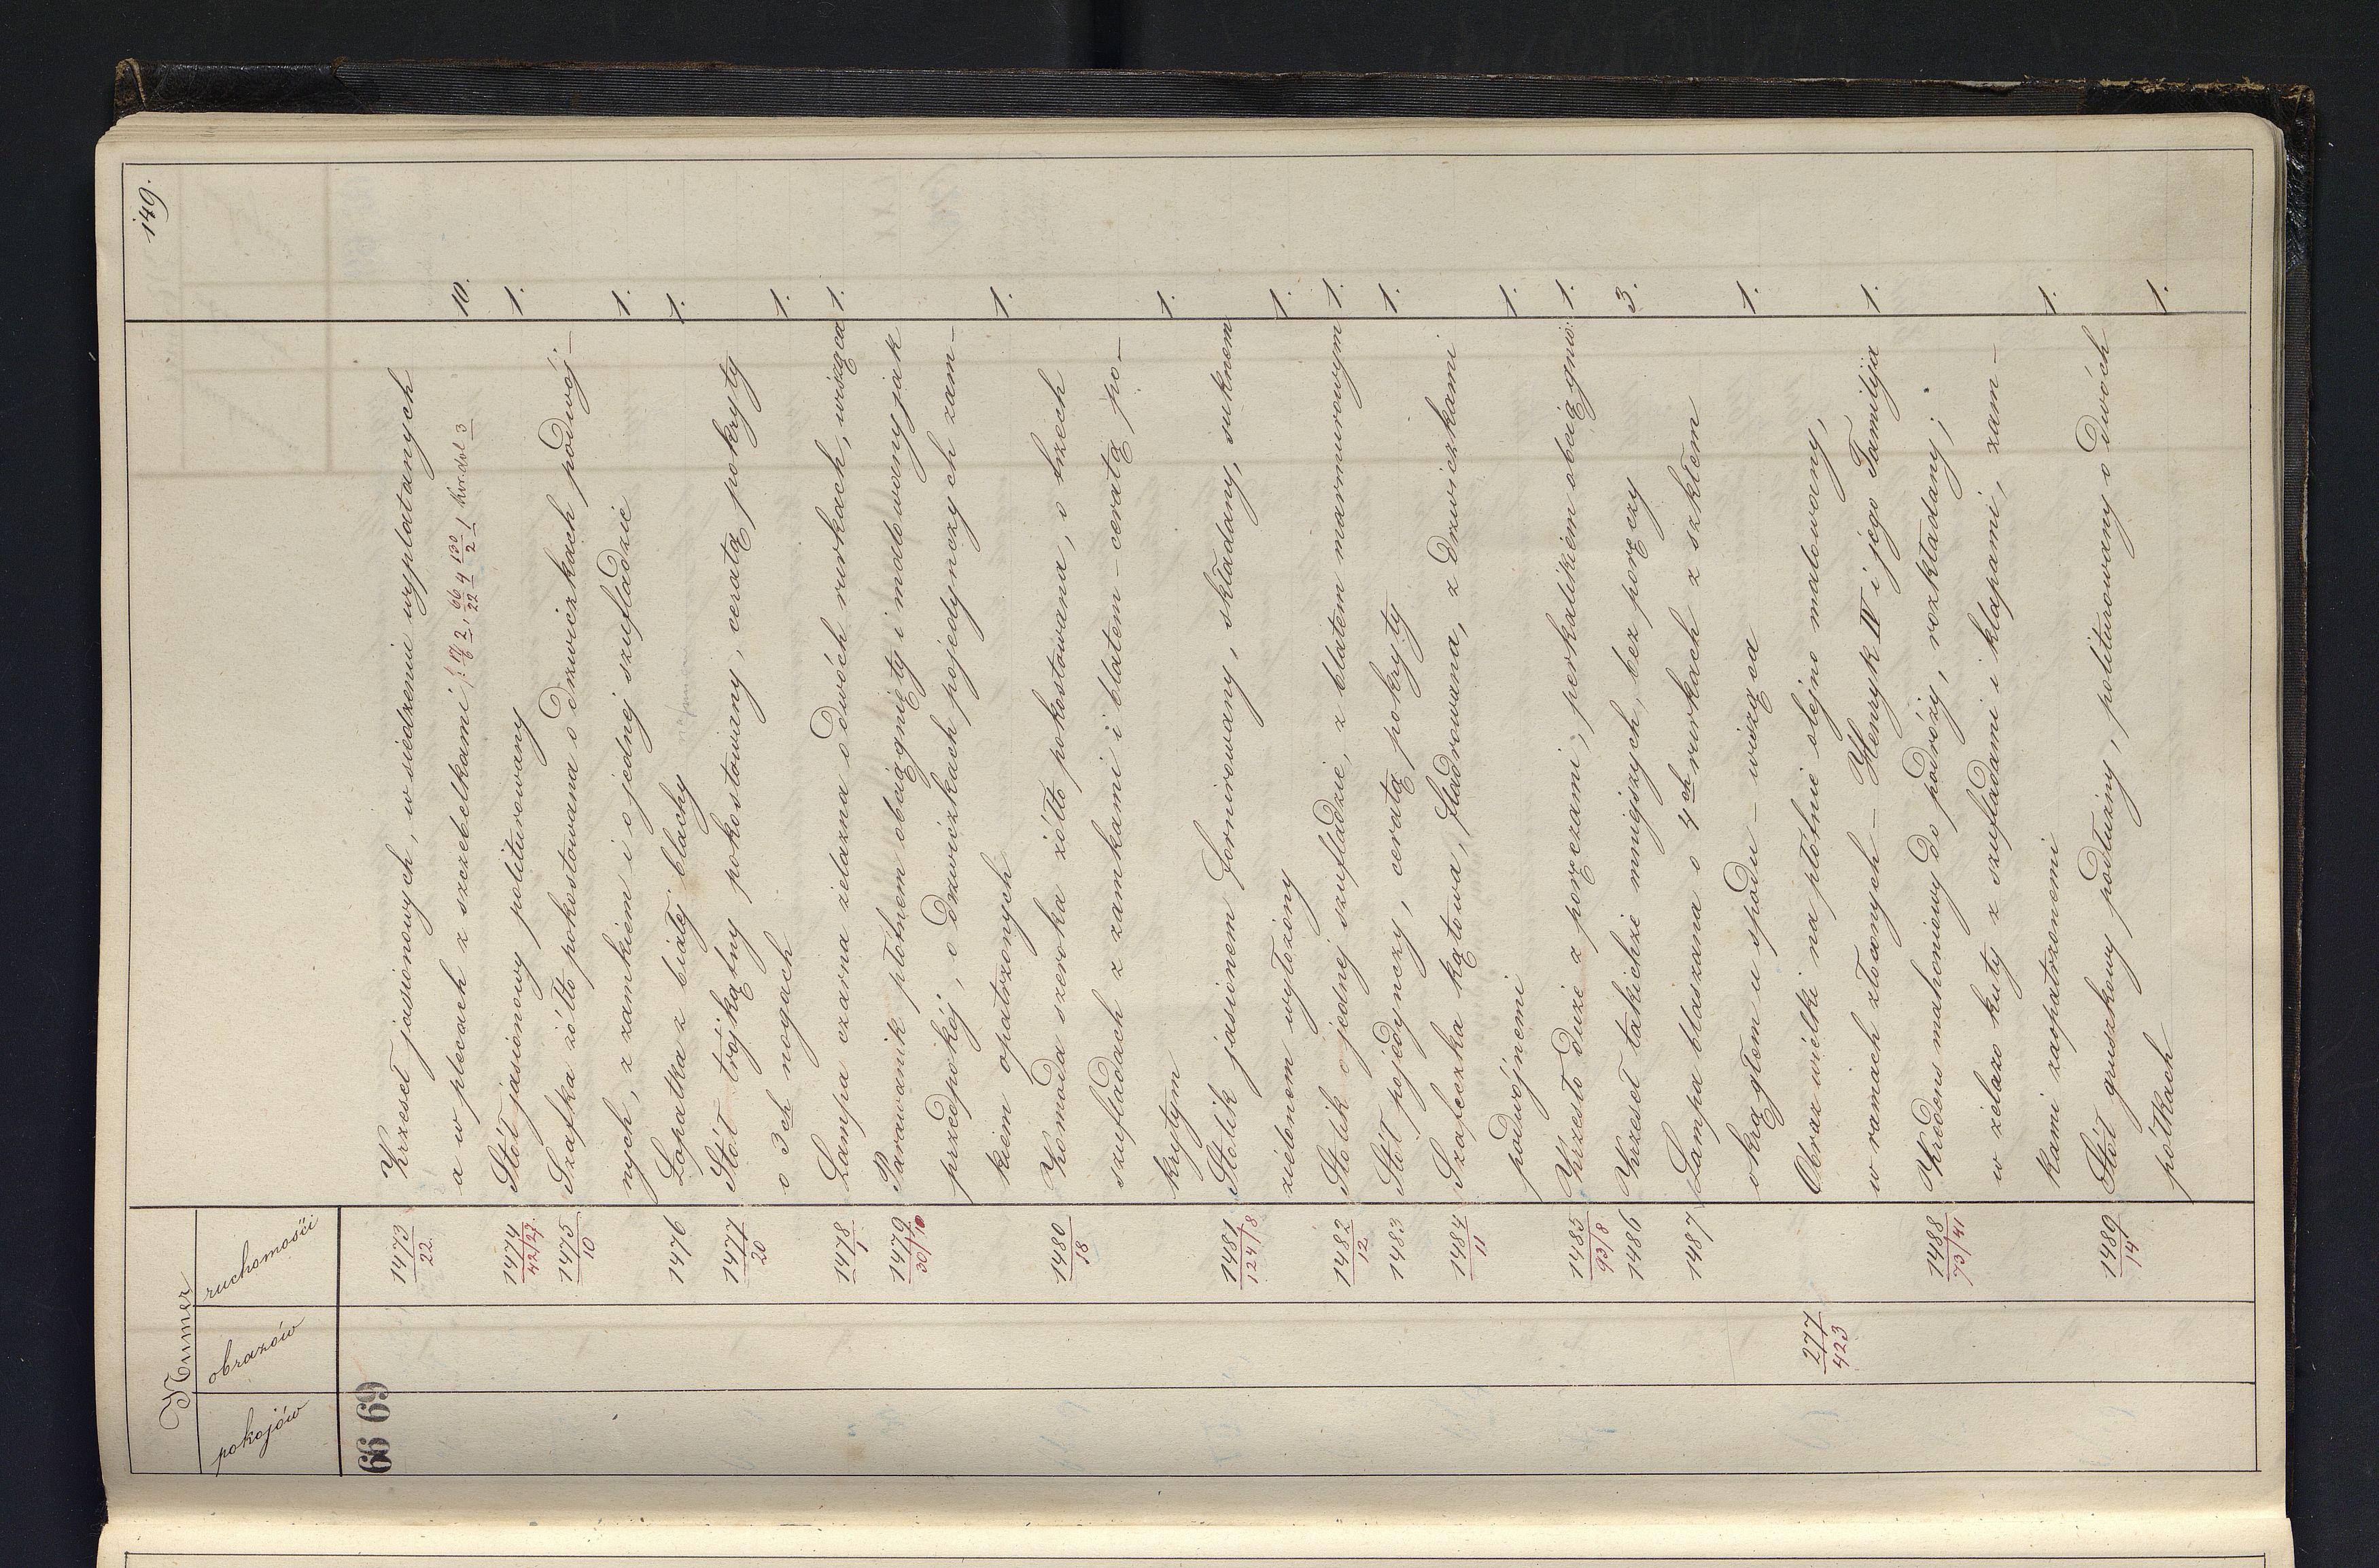 149.
Numer
pokojów obrazów ruchomości
66 69
1473 Krzeseł jasionowych, w siedzeniu wyplatanych
22 a w plecach z szczebelkami, 2, 66/22 4 130/2 1 kor.dol 3 10.
1474 Stół jasionowy politurowany 1.
42/27
1475 Szafka żółto pokostowana o drzwiczkach podwój-
10
nych, z zamkiem i o jednej szufladzie 1.
1476 Łopatka z białej blachy 1.
1477 Stół trójkątny pokostowany, ceratą pokryty
20
o 3ch nogach 1.
1478 Lampa czarna żelazna o dwóch rurkach, wisząca 1.
1
1479 Parawanik płótnem obciągnięty i malowany jak
30/10
przedpokój, o drzwiczkach pojedynczych zam-
kiem opatrzonych 1.
1480 Komoda szeroka żółto pokostowana, o trzech
18
szufladach z zamkami i blatem - ceratą po-
krytym 1.
1481 Stolik jasionem fornirowany, składany, suknem
124/8
zielonem wyłożony 1.
1482 Stolik o jednej szufladzie, z blatem marmurowym 1.
12
1483 Stół pojedynczy, ceratą pokryty 1.
1484 Szafeczka kątowa, fladrowana, z drzwiczkami
11
podwójnemi 1.
1485 Krzesło duże z poręczami, perkalikiem obciągnię: 1.
93/8
1486 Krzeseł takichże mniejszych, bez poręczy 3.
1487 Lampa blaszana o 4ch rurkach z szkłem
okrągłem u spodu - wisząca 1.
277 Obraz wielki na płótnie olejno malowany,
423
w ramach złoconych - Henryk IV i jego Familija 1.
1488 Kredens mahoniowy do podróży, rozkładany;
73/41
w żelazo kuty z szufladami i klapami, zam-
kami zaopatrzonemi 1.
1489 Stół gruszkowy podłużny, politurowany o dwóch
14
półkach 1.